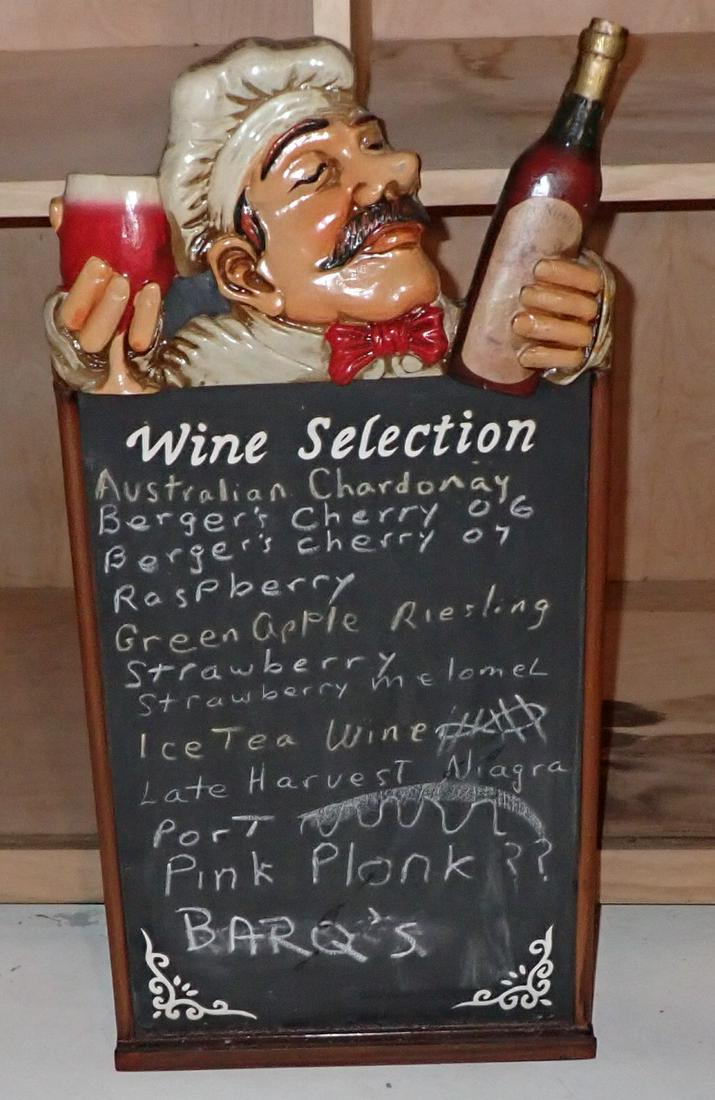 Wine Selection
Australian Chardonay
Berger's Cherry 06
Berger's Cherry 07
Raspberry
Green Apple Riesling
Strawberry
Strawberry melomel
Ice Tea Wine
Late Harvest Niagra
Port
Pink Plonk ??
BARQ's